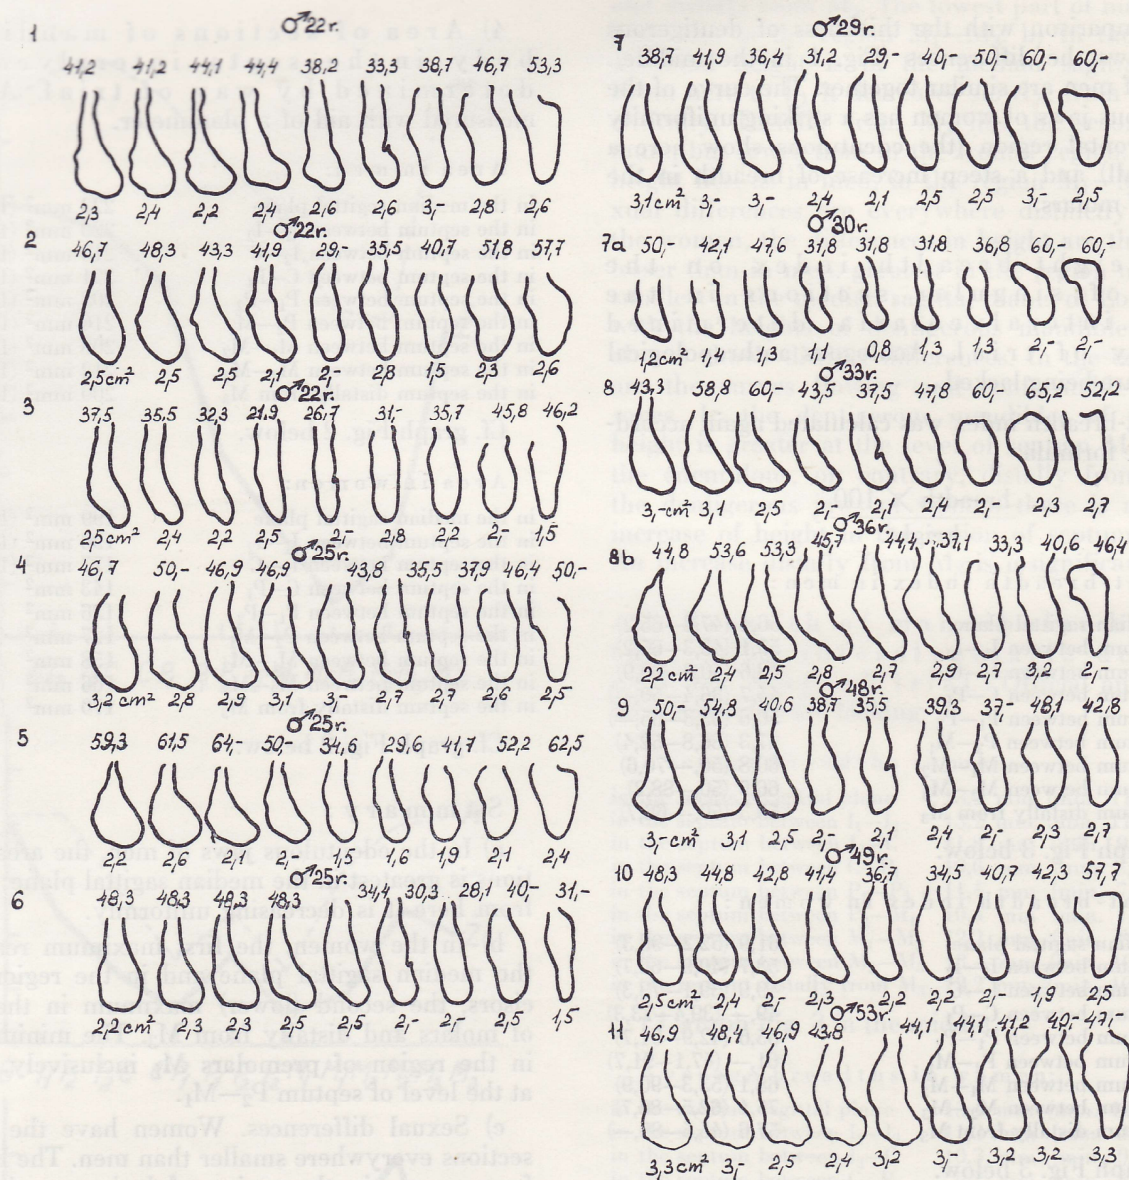 1 ♂22r.
41,2 41,2 44,1 44,4 38,2 33,3 38,7 46,7 53,3
2,3 2,4 2,2 2,4 2,6 2,6 3,- 2,8 2,6
2 ♂22r.
46,7 48,3 43,3 41,9 29,- 35,5 40,7 51,8 57,7
2,5cm² 2,5 2,5 2,1 2,- 2,8 1,5 2,3 2,6
3 ♂22r.
37,5 35,5 32,3 21,9 26,7 31,- 35,7 45,8 46,2
2,5cm² 2,4 2,2 2,5 2,- 2,8 2,2 2,- 1,5
4 ♂25r.
46,7 50,- 46,9 46,9 43,8 35,5 37,9 46,4 50,-
3,2cm² 2,8 2,9 3,1 3,- 2,7 2,7 2,6 2,5
5 ♂25r.
59,3 61,5 64,- 50,- 34,6 29,6 41,7 52,2 62,5
2,2 2,6 2,1 2,- 1,5 1,6 1,9 2,1 2,4
6 ♂25r.
48,3 48,3 48,3 48,3 34,4 30,3 28,1 40,- 31,-
2,2cm² 2,3 2,3 2,5 2,5 2,- 2,5 1,5
7 ♂29r.
38,7 41,9 36,4 31,2 29,- 40,- 50,- 60,- 60,-
3,1cm² 3,- 3,- 2,4 2,1 2,5 2,5 3,- 5,5
7a ♂30r.
50,- 42,1 47,6 31,8 31,8 31,8 36,8 60,- 60,-
1,2cm² 1,4 1,3 1,1 0,8 1,3 1,3 2,- 2,-
8 ♂33r.
43,3 58,8 60,- 43,5 37,5 47,8 60,- 65,2 52,2
3,-cm² 3,1 2,5 2,- 2,1 2,4 2,- 2,3 2,7
8b ♂36r.
44,8 53,6 53,3 45,7 44,4 37,1 33,3 40,6 46,4
2,2cm² 2,4 2,5 2,8 2,7 2,9 2,7 3,2 2,-
9 ♂48r.
50,- 54,8 40,6 38,7 35,5 39,3 37,- 48,1 42,8
3,-cm² 3,1 2,5 2,- 2,1 2,4 2,- 2,3 2,7
10 ♂49r.
48,3 44,8 42,8 41,4 36,7 34,5 40,7 42,3 57,7
2,5cm² 2,4 2,- 2,3 2,2 2,2 2,- 1,9 2,5
11 ♂53r.
46,9 48,4 46,9 43,8 44,1 44,1 41,2 40,- 47,1
3,3cm² 3,- 2,5 2,4 3,2 3,- 3,2 3,2 3,3